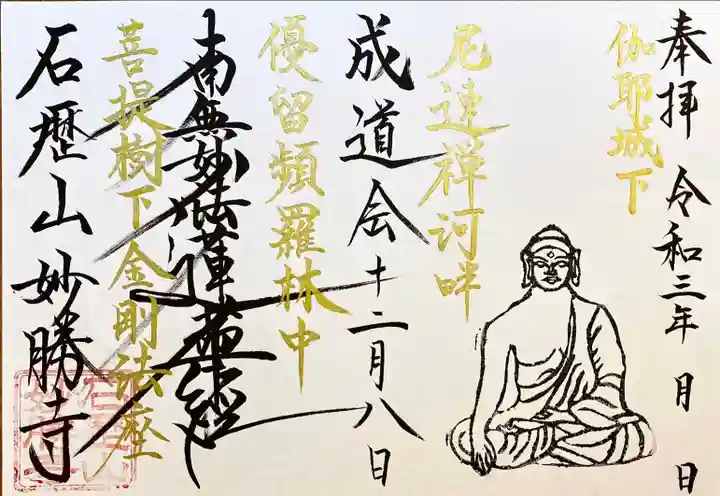 奉拝 令和三年 月 日
伽耶城下
尼連禅河畔
成道会十二月八日
優留頻羅林中
南無妙法蓮華経
菩提樹下金剛法座
石歴山妙勝寺